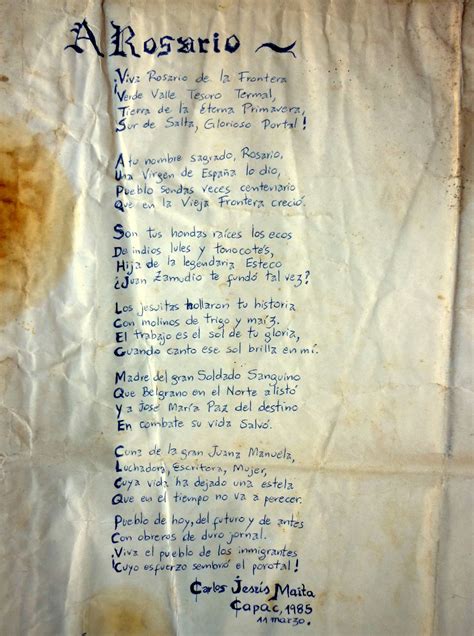 A Rosario
¡Viva Rosario de la Frontera
Verde Valle Tesoro Termal,
Tierra de la Eterna Primavera,
Sur de Salta, Glorioso Portal!
A tu nombre sagrado, Rosario,
Una Virgen de España lo dio,
Pueblo sondas veces centenario
Que en la Vieja Frontera creció.
Son tus hondas raíces los ecos
De indios lules y tonocotés,
Hija de la legendaria Esteco
¿Juan Zamudio te fundó tal vez?
Los jesuitas hollaron tu historia
Con molinos de trigo y maíz.
El trabajo es el sol de tu gloria,
Cuando canto ese sol brilla en mí.
Madre del gran Soldado Sanguino
Que Belgrano en el Norte alistó
Y a José María Paz del destino
En combate su vida Salvó.
Cuna de la gran Juana Manuela,
Luchadora, Escritora, Mujer,
Cuya vida ha dejado una estela
Que en el tiempo no va a perecer.
Pueblo de hoy, del futuro y de antes
Con obreros de duro jornal.
¡Viva el pueblo de los inmigrantes
Cuyo esfuerzo sembró el porotal!
Carlos Jesús Maita
Capac, 1985
11 marzo.